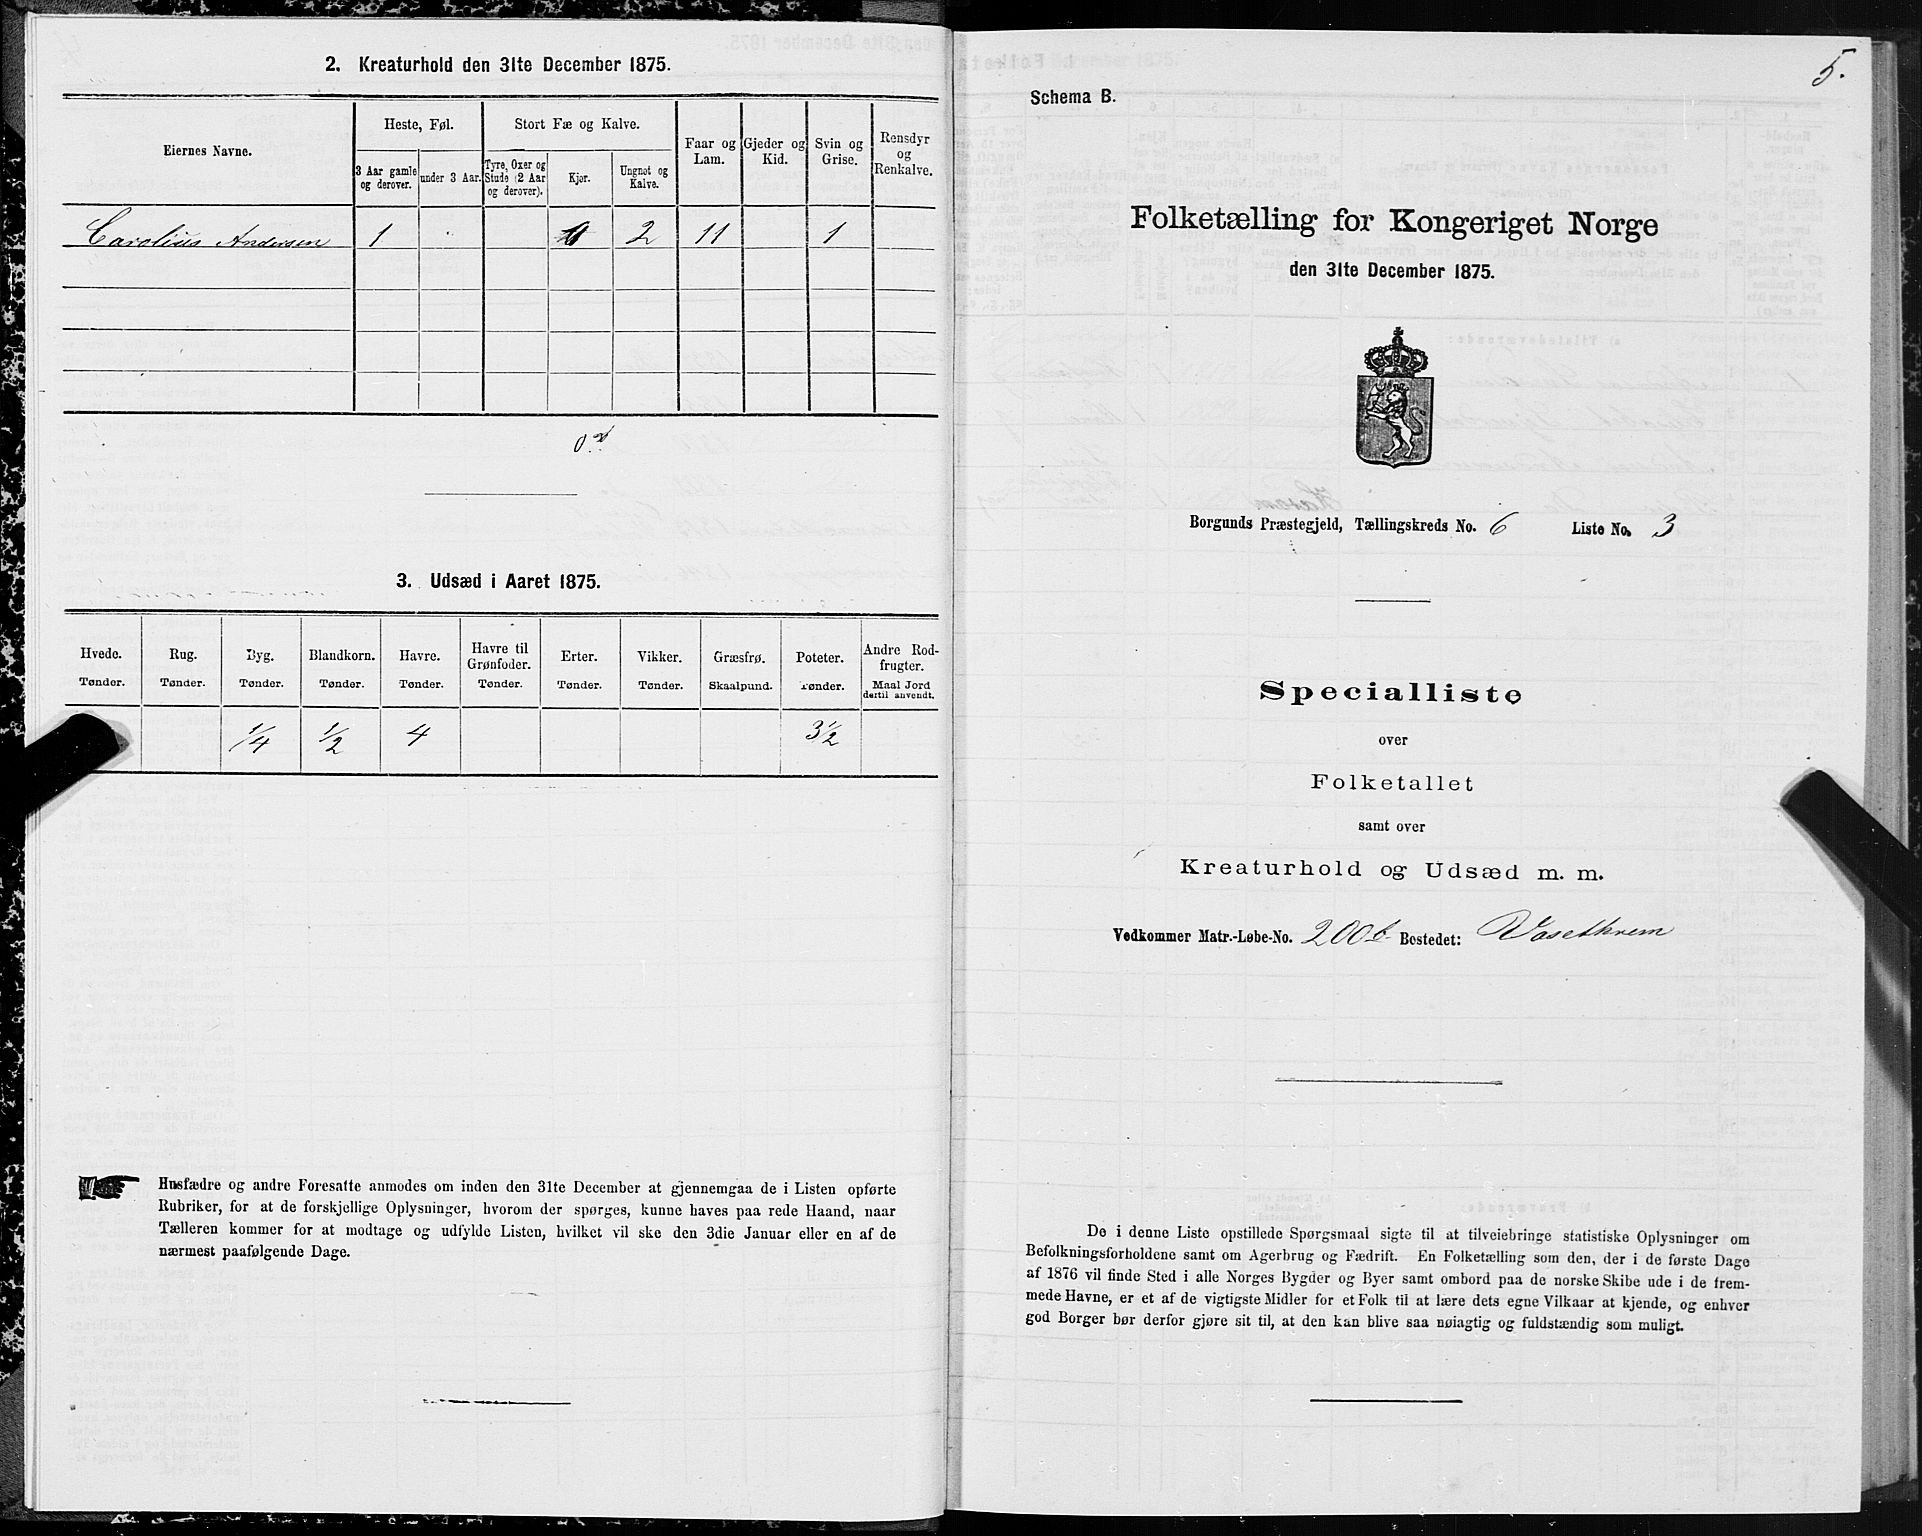 2. Kreaturhold den 31te December 1875.
Eiernes Navne.
Heste, Føl.
Stort Fæ og Kalve.
Faar og Lam.
Gjeder og Kid.
Svin og Grise.
Rensdyr og Renkalve.
3 Aar gamle og derover.
under 3 Aar.
Tyre, Oxer og Stude (2 Aar og derover).
Kjør.
Ungnøt og Kalve.
Carolius Andersen 1 2 11 1
3. Udsæd i Aaret 1875.
Hvede. Rug. Byg. Blandkorn. Havre. Havre til Grønfoder. Erter. Vikker. Græsfrø. Poteter. Andre Rodfrugter.
Tønder. Tønder. Tønder. Tønder. Tønder. Tønder. Tønder. Tønder. Skaalpund. Tønder. Maal Jord dertil anvendt.
1/4 1/2 4 3 1/2
Husfædre og andre Foresatte anmodes om inden den 31te December at gjennemgaa de i Listen opførte
Rubriker, for at de forskjellige Oplysninger, hvorom der spørges, kunne haves paa rede Haand, naar
Tælleren kommer for at modtage og udfylde Listen, hvilket vil ske den 3die Januar eller en af de
nærmest paafølgende Dage.
5.
Schema B.
Folketælling for Kongeriget Norge
den 31te December 1875.
Borgunds Præstegjeld, Tællingskreds No. 6 Liste No. 3
Specialliste
over
Folketallet
samt over
Kreaturhold og Udsæd m. m.
Vedkommer Matr.-Løbe-No. 200b Bostedet: Vasethrem
De i denne Liste opstillede Spørgsmaal sigte til at tilveiebringe statistiske Oplysninger om
Befolkningsforholdene samt om Agerbrug og Fædrift. En Folketælling som den, der i de første Dage
af 1876 vil finde Sted i alle Norges Bygder og Byer samt ombord paa de norske Skibe ude i de frem-
mede Havne, er et af de vigtigste Midler for et Folk til at lære dets egne Vilkaar at kjende, og enhver
god Borger bør derfor gjøre sit til, at den kan blive saa nøiagtig og fuldstændig som muligt.